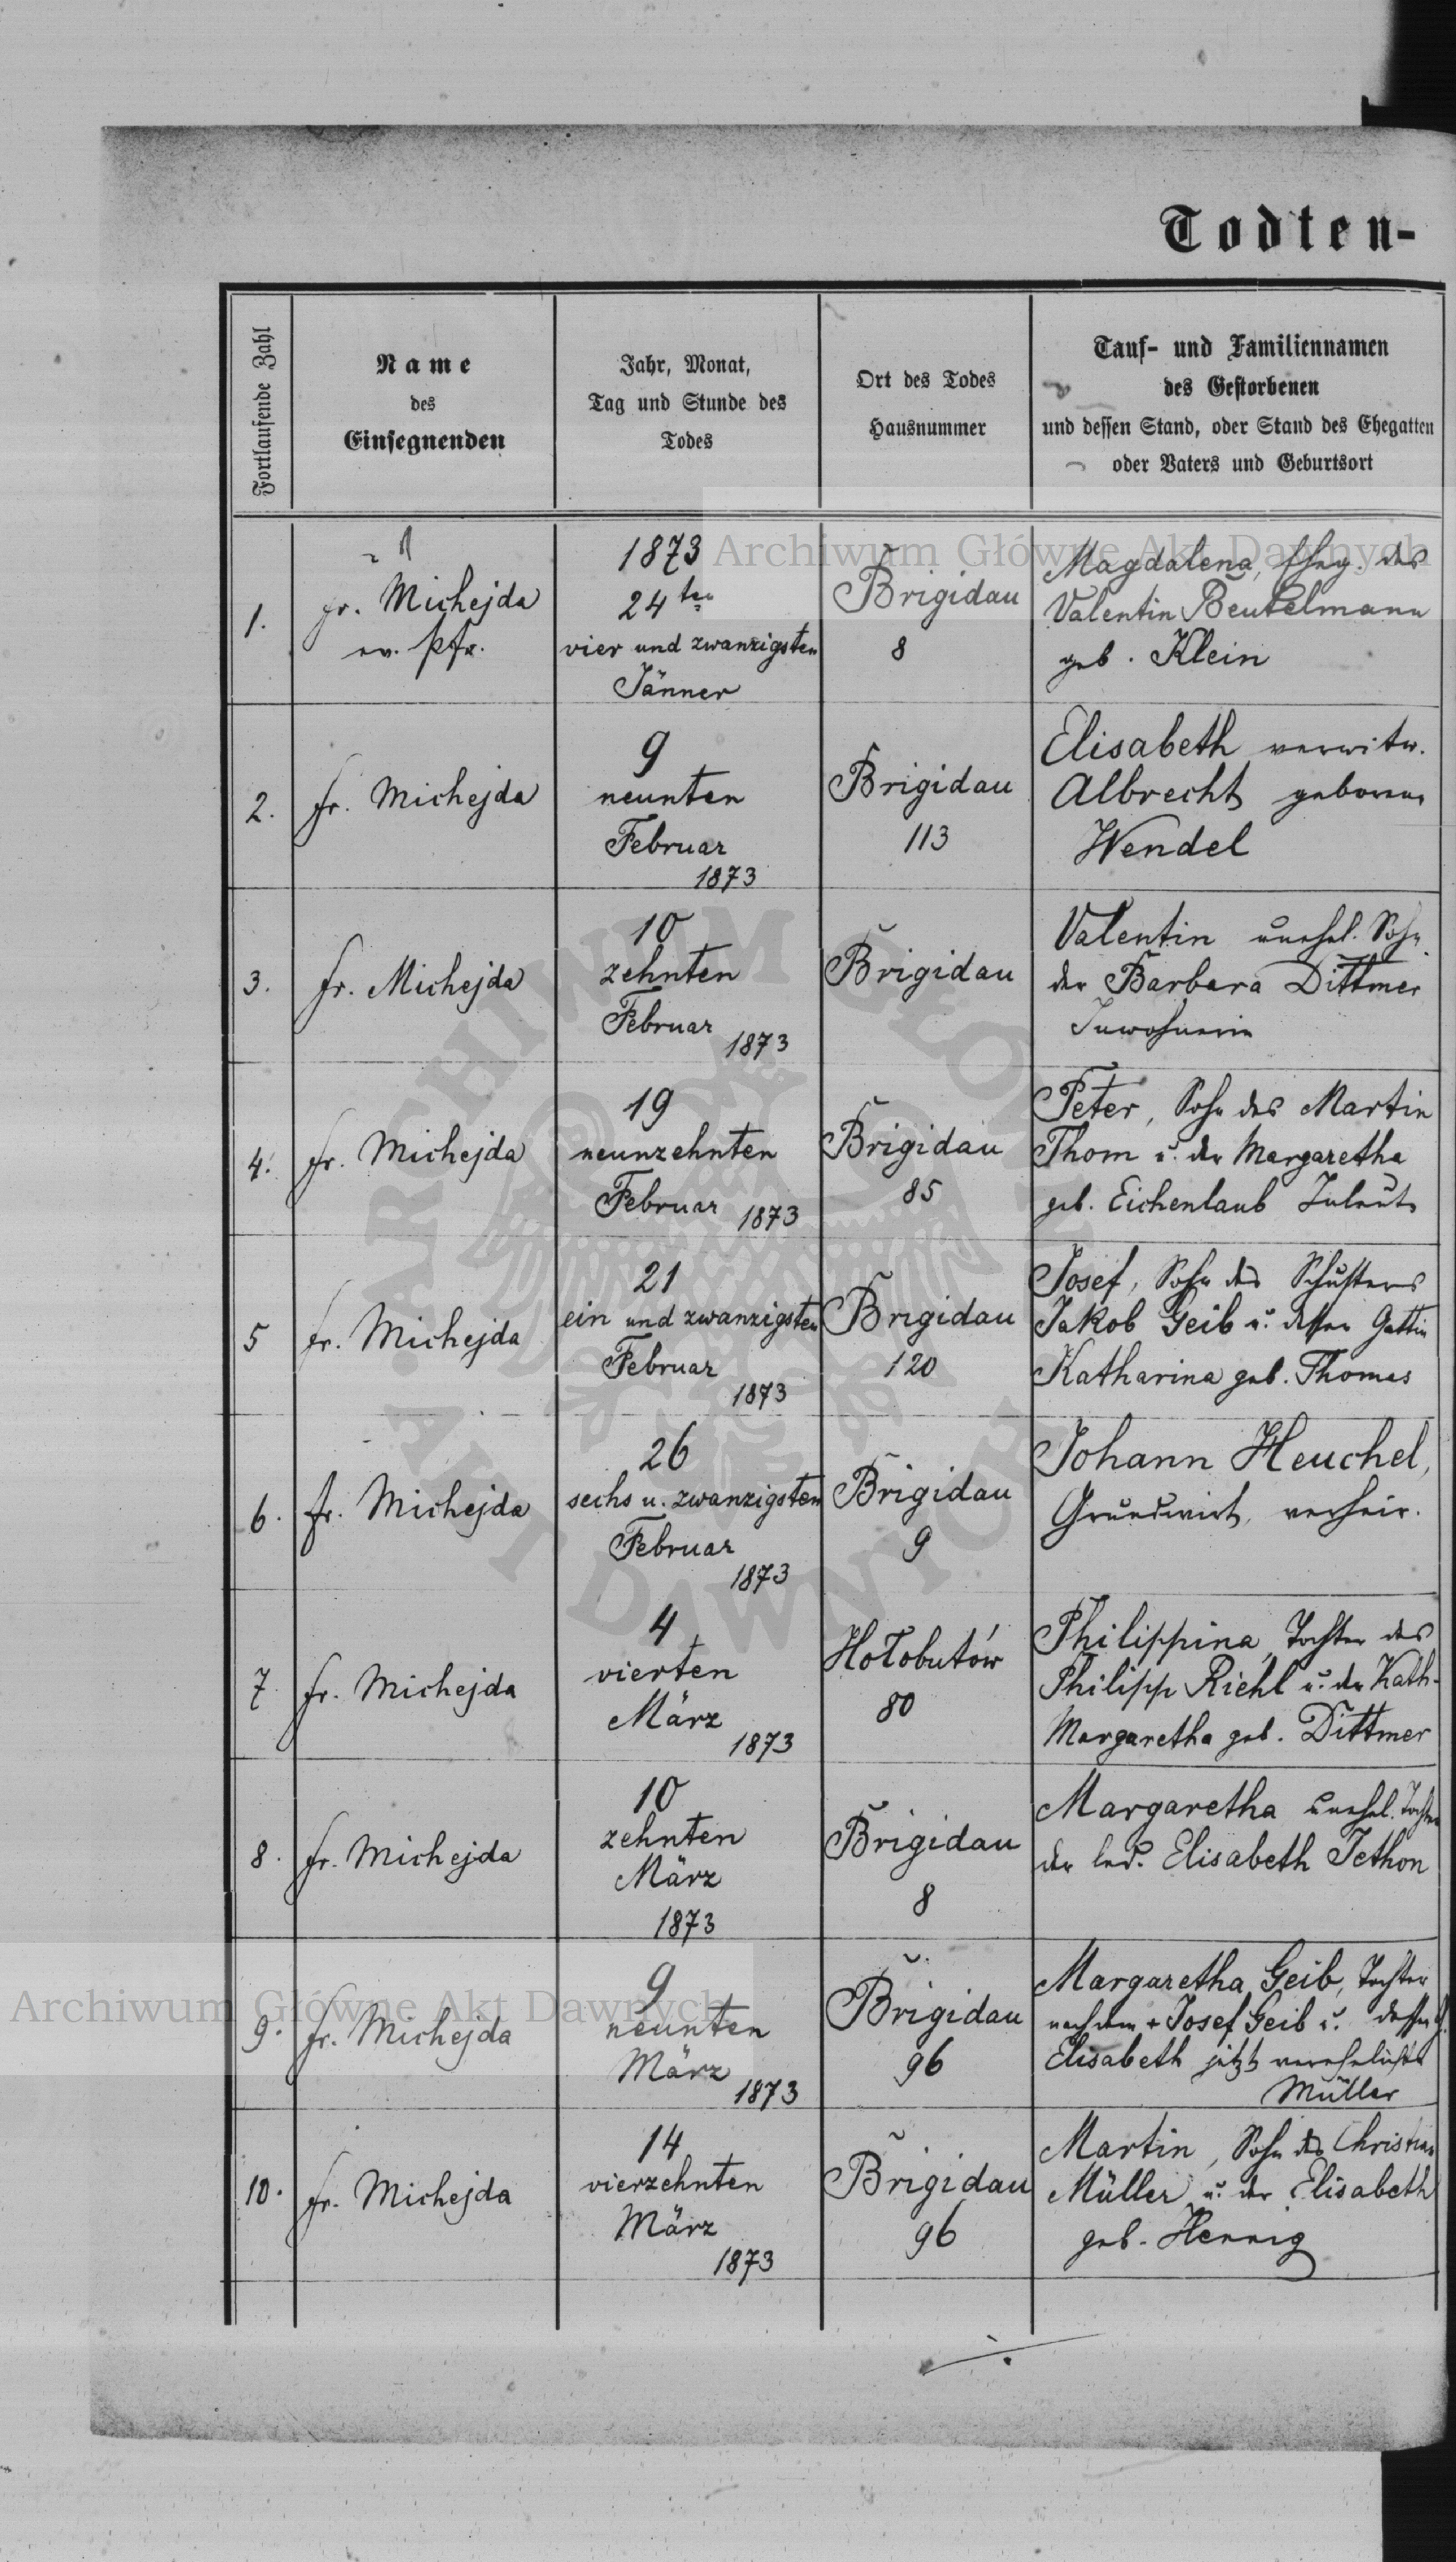 Todten-
Fortlaufende Zahl
Name
des
Einsegnenden
Jahr, Monat,
Tag und Stunde des
Todes
Ort des Todes
Hausnummer
Tauf- und Familiennamen
des Gestorbenen
und dessen Stand, oder Stand des Ehegatten
oder Vaters und Geburtsort
1.
fr. Michejda
ev. Pfr.
1873
24ten
vier und zwanzigsten
Jänner
Brigidau
8
Magdalena, Eheg. des
Valentin Beutelmann
geb. Klein
2.
fr. Michejda
9
neunten
Februar
1873
Brigidau
113
Elisabeth verwitw.
Albrecht geborene
Wendel
3.
fr. Michejda
10
zehnten
Februar
1873
Brigidau
Valentin unehel. Sohn
der Barbara Dittmer
Inwohnerin
4.
fr. Michejda
19
neunzehnten
Februar 1873
Brigidau
85
Peter, Sohn des Martin
Thom u. der Margaretha
geb. Eichenlaub Inleute
5
fr. Michejda
21
ein und zwanzigsten
Februar
1873
Brigidau
120
Josef, Sohn des Schusters
Jakob Geib u. dessen Gattin
Katharina geb. Thomas
6.
fr. Michejda
26
sechs u. zwanzigsten
Februar
1873
Brigidau
9
Johann Heuchel,
Grundwirt, verheir.
7
fr. Michejda
4
vierten
März
1873
Hołobutów
80
Philippina, Tochter des
Philipp Riehl u. der Kath.
Margaretha geb. Dittmer
8.
fr. Michejda
10
zehnten
März
1873
Brigidau
8
Margaretha unehel. Tochter
der led. Elisabeth Jethon
9.
fr. Michejda
9
neunten
März
1873
Brigidau
96
Margaretha Geib, Tochter
nach dem + Josef Geib u. dessen
Elisabeth jetzt verehelichte
Müller
10.
fr. Michejda
14
vierzehnten
März
1873
Brigidau
96
Martin, Sohn des Christian
Müller u. der Elisabeth
geb. Hennig
Archiwum Główne Akt Dawnych
Archiwum Główne Akt Dawnych
ARCHIWUM GŁÓWNE
AKT DAWNYCH